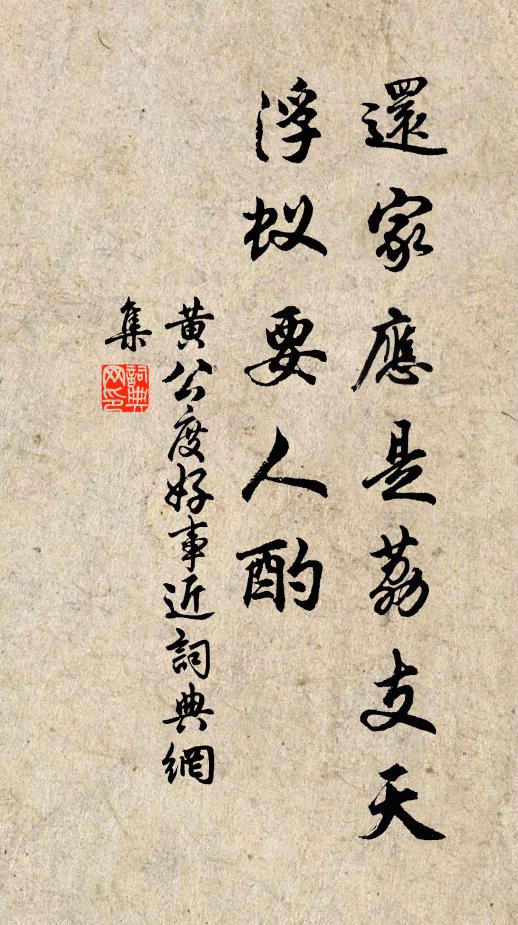 還家應是荔支天
浮蚁要人酌
黃公度好事近詞典網
集
詞典
网印